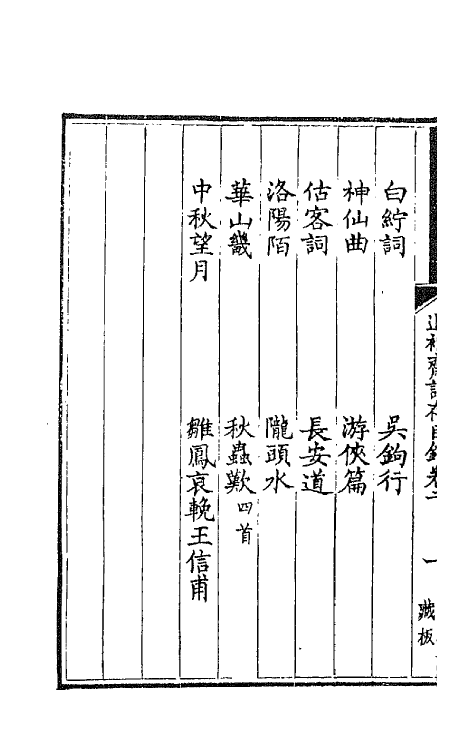 退補齋詩存目錄卷 一 藏板
白紵詞 吳鉤行
神仙曲 游俠篇
估客詞 長安道
洛陽陌 隴頭水
華山畿 秋蟲歎四首
中秋望月 雛鳳哀輓王信甫